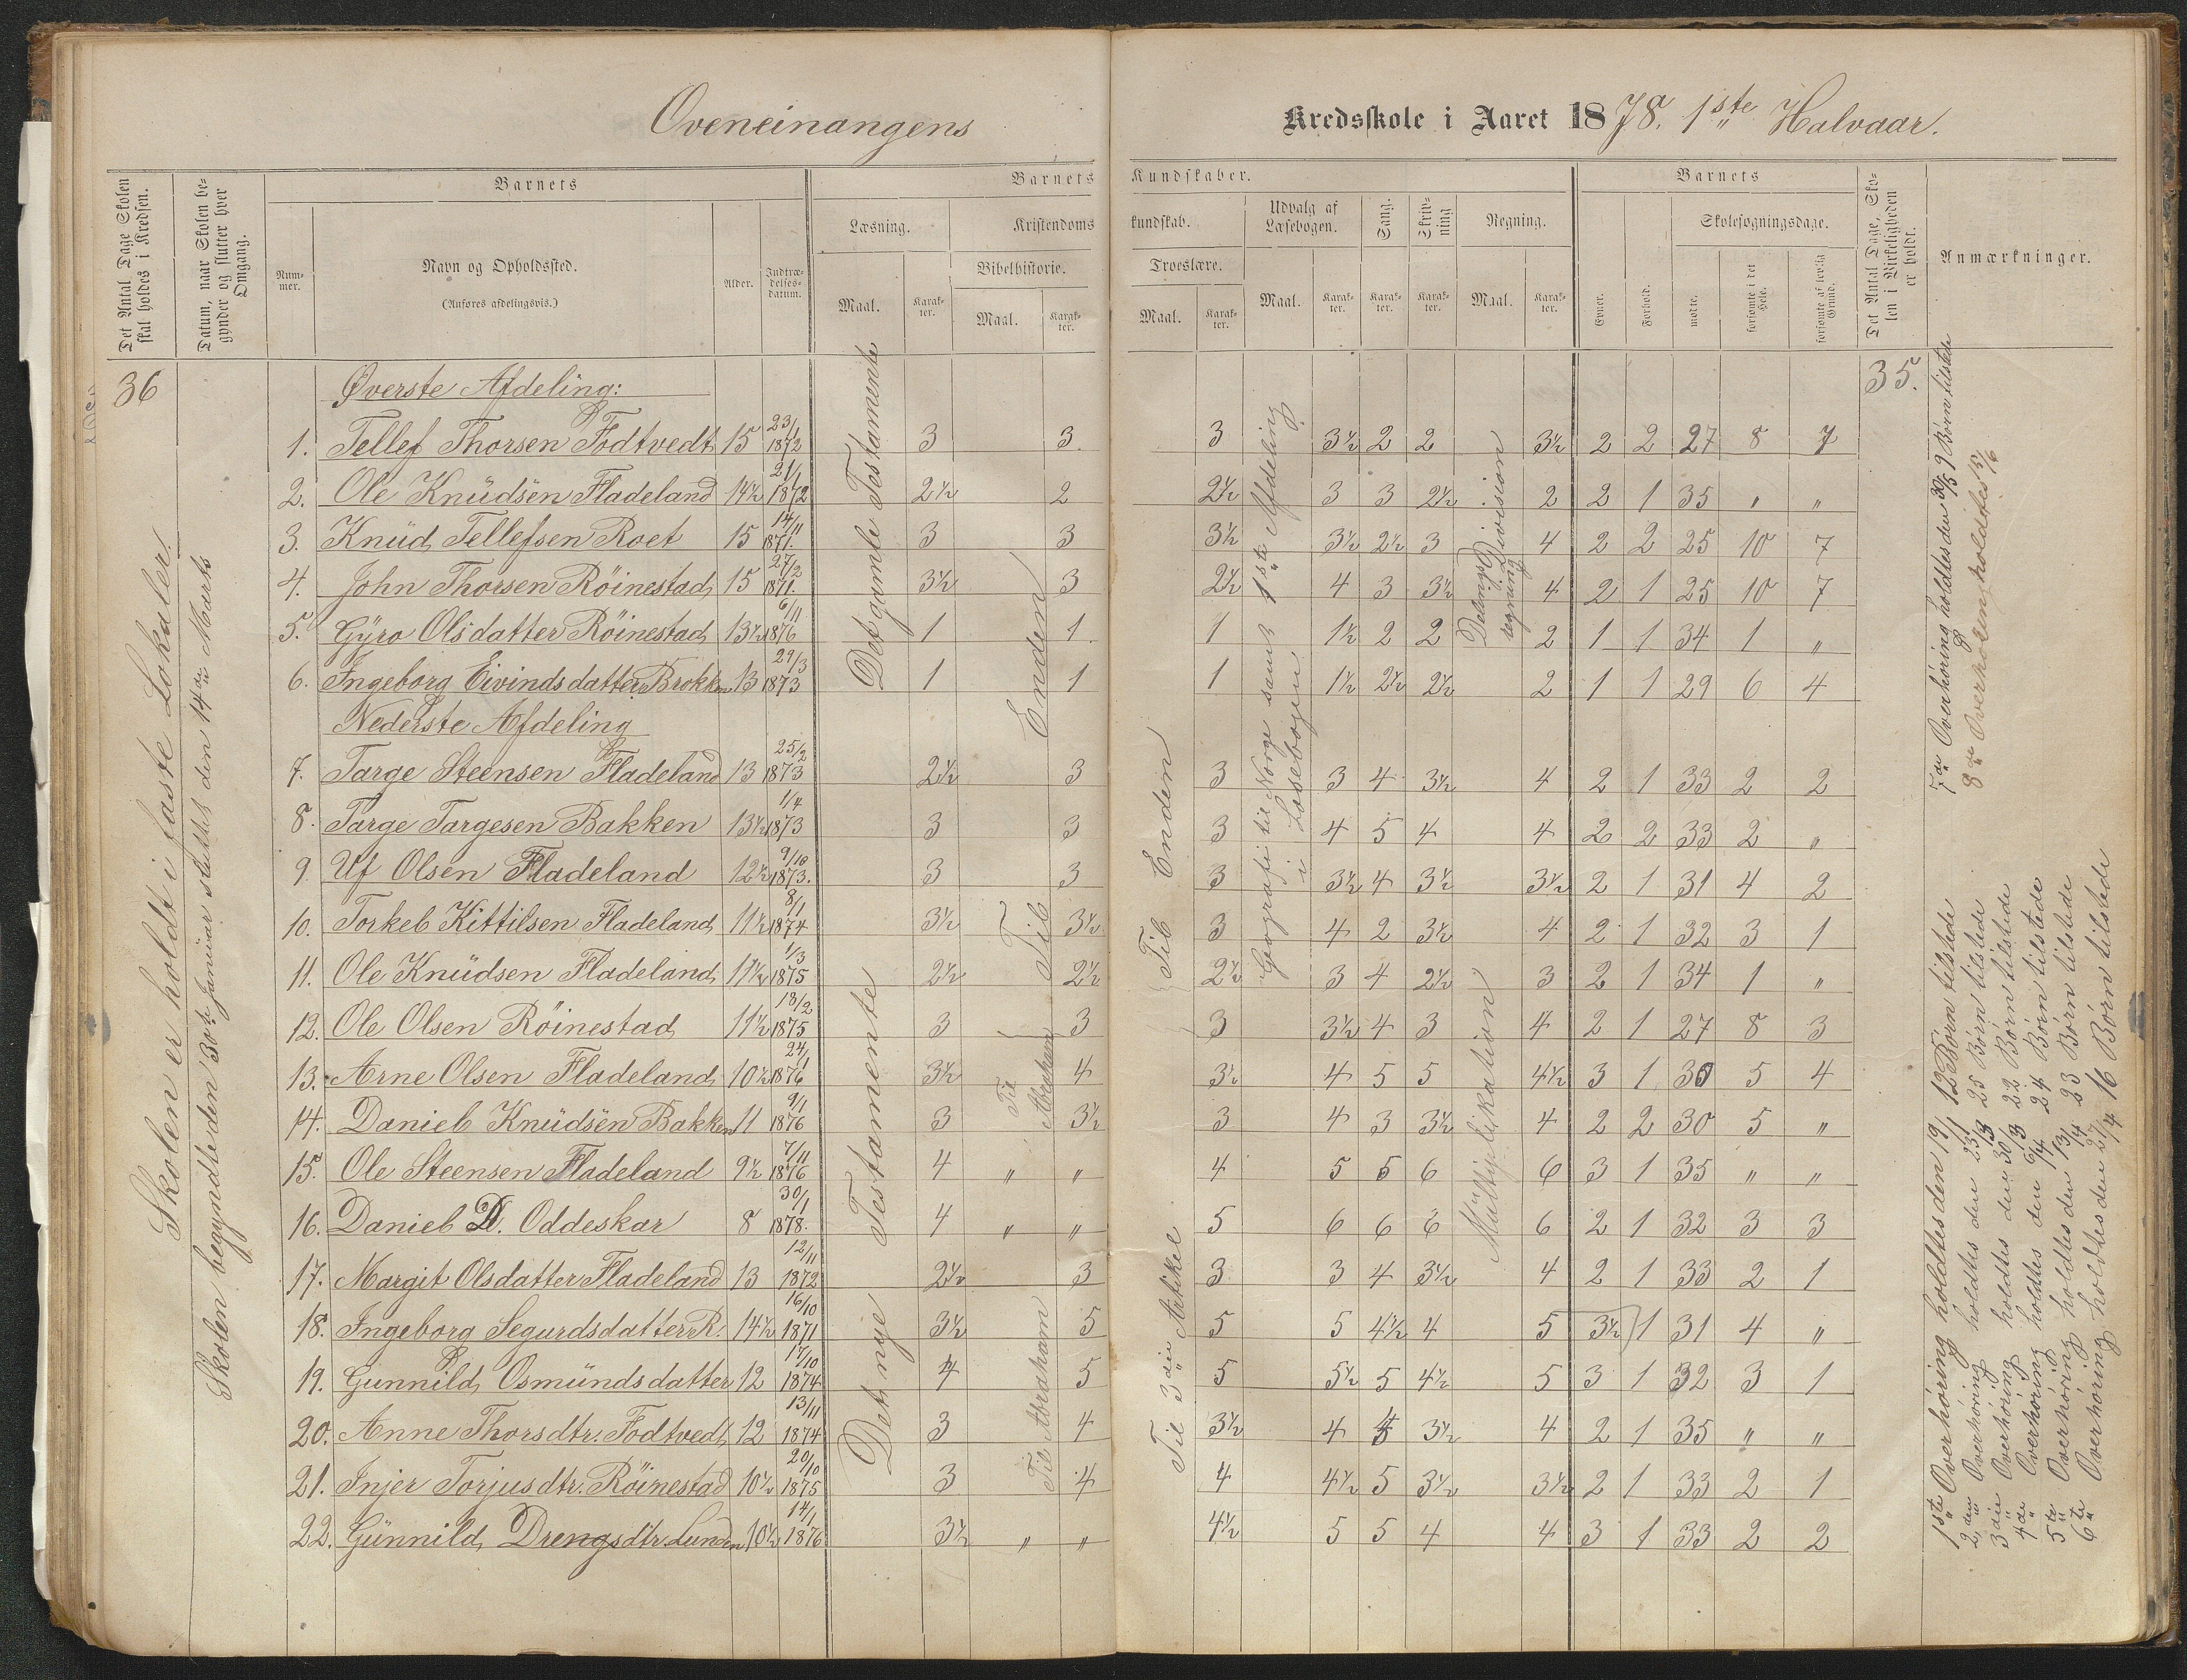 Oveneinangens Kredsskole i Aaret 1878. 1ste Halvaar.
Det Antal Dage Skolen skal holdes i Kredsen.
Datum, naar Skolen begynder og slutter hver Omgang.
Barnets
Num-mer.
Navn og Opholdssted.
(Anføres afdelingsvis.)
Alder.
Indtræ-delses-datum.
Barnets Kundskaber.
Læsning.
Maal.
Karak-ter.
Kristendomskundskab.
Bibelhistorie.
Maal.
Karak-ter.
Troeslære.
Maal.
Karak-ter.
Udvalg af Læsebogen.
Maal.
Karak-ter.
Sang.
Karak-ter.
Skriv-ning
Karak-ter.
Regning.
Maal.
Karak-ter.
Barnets
Evner.
Forhold.
Skolesøgningsdage.
mødte.
forsømte i det Hele.
forsømte af lovlig Grund.
Det Antal Dage, Sko-len i Virkeligheden er holdt.
Anmærkninger.
36
35.
Skolen er holdt i faste Lokaler.
Skolen begyndte den 30te Januar sluttet den 14de Marts
Øverste Afdeling:
1. Tellef Thorsen Fodtvedt 15 23/1 1872 3 3 3 3½ 2 2 3½ 2 2 27 8 7
2. Ole Knüdsen Fladeland 14½ 21/1 1872 2½ 2 2½ 3 3 2½ 2 2 1 35 " "
3. Knüd Tellefsen Roet 15 14/11 1871. 3 3 3½ 3½ 2½ 3 4 2 2 25 10 7
4. John Thorsen Röinestad 15 27/2 1871. 3½ 3 2½ 4 3 3½ 4 2 1 25 10 7
5. Gÿro Olsdatter Röinestad 13½ 6/11 1876 1 1 1 1½ 2 2 2 1 1 34 1 "
6. Ingeborg Eivindsdatter Brokken 13 29/3 1873 1 1 1 1½ 2½ 2½ 2 1 1 29 6 4
Nederste Afdeling
7. Targe Steensen Fladeland 13 25/2 1873 2½ 3 3 3 4 3½ 4 2 1 33 2 2
8. Targe Targesen Bakken 13½ 1/4 1873 3 3 3 4 5 4 4 2 2 33 2 "
9. Uf Olsen Fladeland 12½ 9/10 1873. 3 3 3 3½ 4 3½ 3½ 2 1 31 4 2
10. Torkel Kittilsen Fladeland 11½ 8/1 1874 3½ 3½ 3 4 2 3½ 4 2 1 32 3 1
11. Ole Knüdsen Fladeland 11½ 1/3 1875 2½ 2½ 2½ 3 4 2½ 3 2 1 34 1 "
12. Ole Olsen Röinestad 11½ 18/2 1875 3 3 3 3½ 4 3 4 2 1 27 8 3
13. Arne Olsen Fladeland 10½ 24/1 1876 3½ 4 3½ 4 5 5 4½ 3 1 30 5 4
14. Daniel Knüdsen Bakken 11 9/1 1876 3 3½ 3 4 3 3½ 4 2 2 30 5 "
15. Ole Steensen Fladeland 9½ 7/11 1876 4 " " 4 5 5 6 6 3 1 35 " "
16. Daniel D. Oddeskar 8 30/1 1878. 4 " " 5 6 6 6 6 2 1 32 3 3
17. Margit Olsdatter Fladeland 13 12/11 1872 2½ 3 3 3 4 3½ 4 2 1 33 2 1
18. Ingeborg Segurdsdatter R. 14½ 16/10 1871 3½ 5 5 5 4½ 4 5 3½ 1 31 4 "
19. Gunnild Osmündsdatter 12 17/10 1874 4 5 5 5½ 5 4½ 5 3 1 32 3 1
20. Anne Thorsdtr. Fodtvedt 12 13/11 1874 3 4 3½ 4 4 3½ 4 2 1 35 " "
21. Injer Torjusdtr. Röinestad 10½ 20/10 1875 3 4 4 4½ 5 3½ 3½ 2 1 33 2 1
22. Günnild Drengsdtr. Lunden 10½ 14/1 1876 3½ " " 4½ 5 5 4 4 3 1 33 2 2
Det gamle Testamente
Det nye Testamente
Til Enden
Til Abraham
Til Abraham
Til Enden
Til 3die Artikel
Geografi til Norge samt 1ste Afdeling i Læsebogen
Delings regning: Division
Mültiplikation
1ste Overhøring holdtes den 19/1 12 Børn tilstede
2den Overhøring holdtes den 23/1 25 Børn tilstede
3die Overhøring holdtes den 30/3 22 Børn tilstede
4de Overhøring holdtes den 6/4 24 Børn tilstede
5te Overhøring holdtes den 13/4 23 Børn tilstede
6te Overhøring holdtes den 27/4 16 Børn tilstede
7de Overhøring holdtes den 30/5 9 Børn tilstede
8de Overhøring holdtes 15/6